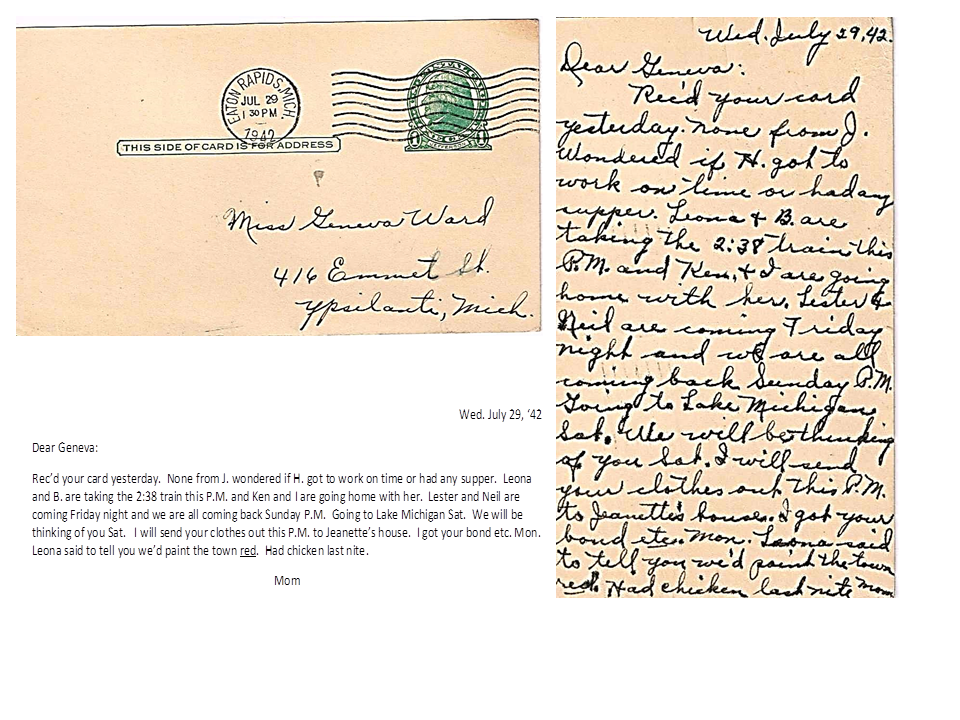 EATON RAPIDS, MICH.
JUL 29
1 30 PM
1942
THIS SIDE OF CARD IS FOR ADDRESS
1 JEFFERSON 1
Miss Geneva Ward
416 Emmet St.
Ypsilanti, Mich.
Wed. July 29, '42
Dear Geneva:
Rec'd your card yesterday. None from J. wondered if H. got to work on time or had any supper. Leona
and B. are taking the 2:38 train this P.M. and Ken and I are going home with her. Lester and Neil are
coming Friday night and we are all coming back Sunday P.M. Going to Lake Michigan Sat. We will be
thinking of you Sat. I will send your clothes out this P.M. to Jeanette's house. I got your bond etc. Mon.
Leona said to tell you we'd paint the town red. Had chicken last nite.
Mom
Wed. July 29, 42.
Dear Geneva:
Rec'd your card
yesterday. None from J.
Wondered if H. got to
work on time or had any
supper. Leona & B. are
taking the 2:38 train this
P.M. and Ken, & I are going
home with her. Lester &
Neil are coming Friday
night and we are all
coming back Sunday P.M.
Going to Lake Michigan
Sat. We will be thinking
of you Sat. I will send
your clothes out this P.M.
to Jeanette's house. I got your
bond etc. Mon. Leona said
to tell you we'd paint the town
red. Had chicken last nite Mom